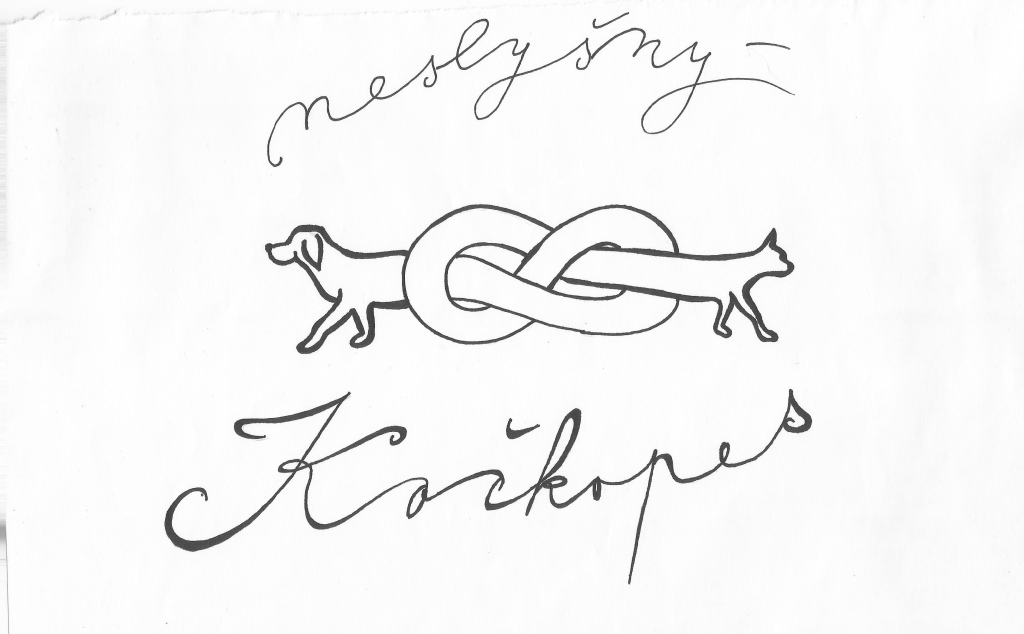 neslyšný
Kočkopes